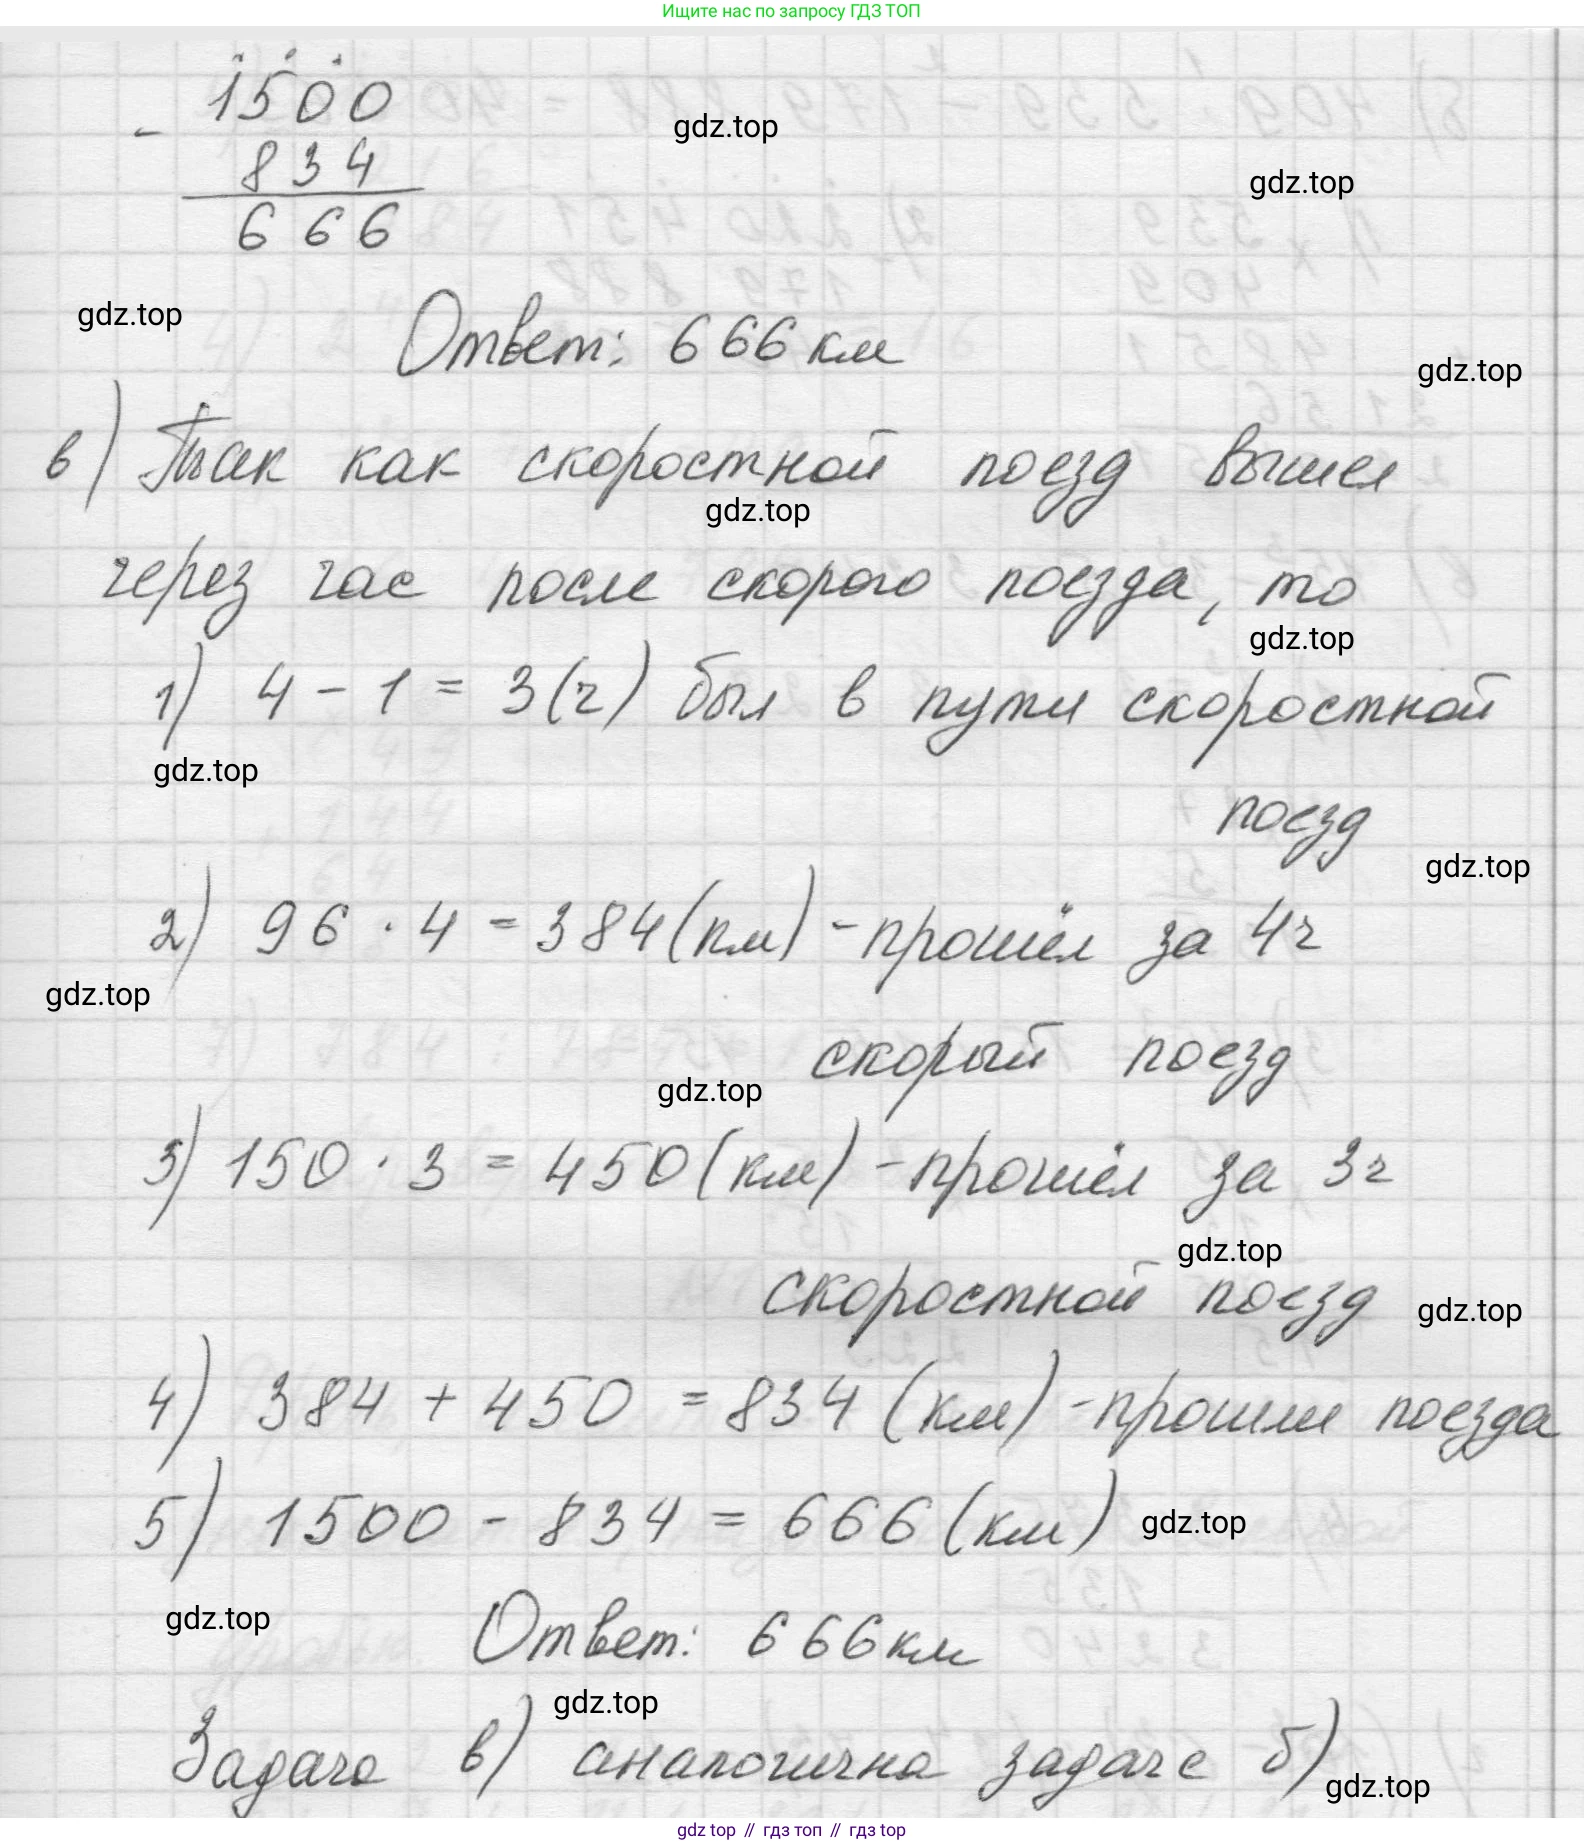 Ищите нас по запросу ГДЗ ТОП
1500
gdz.top
-
834
gdz.top
666
gdz.top
Ответ: 666 км
gdz.top
в) Так как скоростной поезд вышел
gdz.top
через час после скорого поезда, то
gdz.top
1) 4 - 1 = 3 (ч) был в пути скоростной
gdz.top
поезд
gdz.top
2) 96 · 4 = 384 (км) - прошёл за 4ч
gdz.top
скорый поезд
gdz.top
3) 150 · 3 = 450 (км) - прошёл за 3ч
gdz.top
скоростной поезд
gdz.top
4) 384 + 450 = 834 (км) - прошли поезда
5) 1500 - 834 = 666 (км)
gdz.top
gdz.top
Ответ: 666 км
gdz.top
Задача в) аналогична задаче б)
gdz.top
gdz top // гдз топ // гдз top